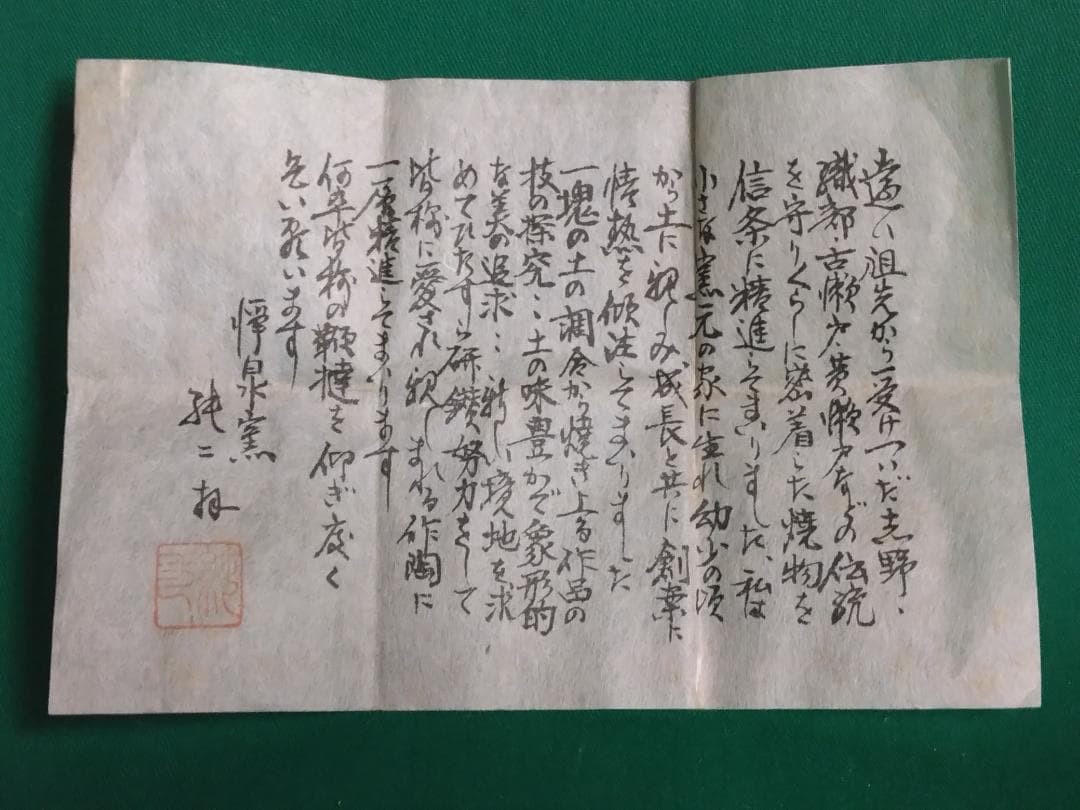 遠い祖先から受けついだ志野、
織部、古瀬戸、黄瀬戸などの伝統
を守りくらしに密着した焼物を
信条に精進してまいりました、私は
小さな窯元の家に生れ幼少の頃
から土に親しみ、成長と共に創業に
情熱を傾注してまいりました
一塊の土の調合から焼き上る作品の
技の探究…土の味豊かで象形的
な美の追求…新しい境地を求
めてひたすら研鑽努力をして
皆様に愛され親しまれる作陶に
一層精進してまいります
何卒皆様の鞭撻を仰ぎ度く
乞い願います
泉窯
二拝